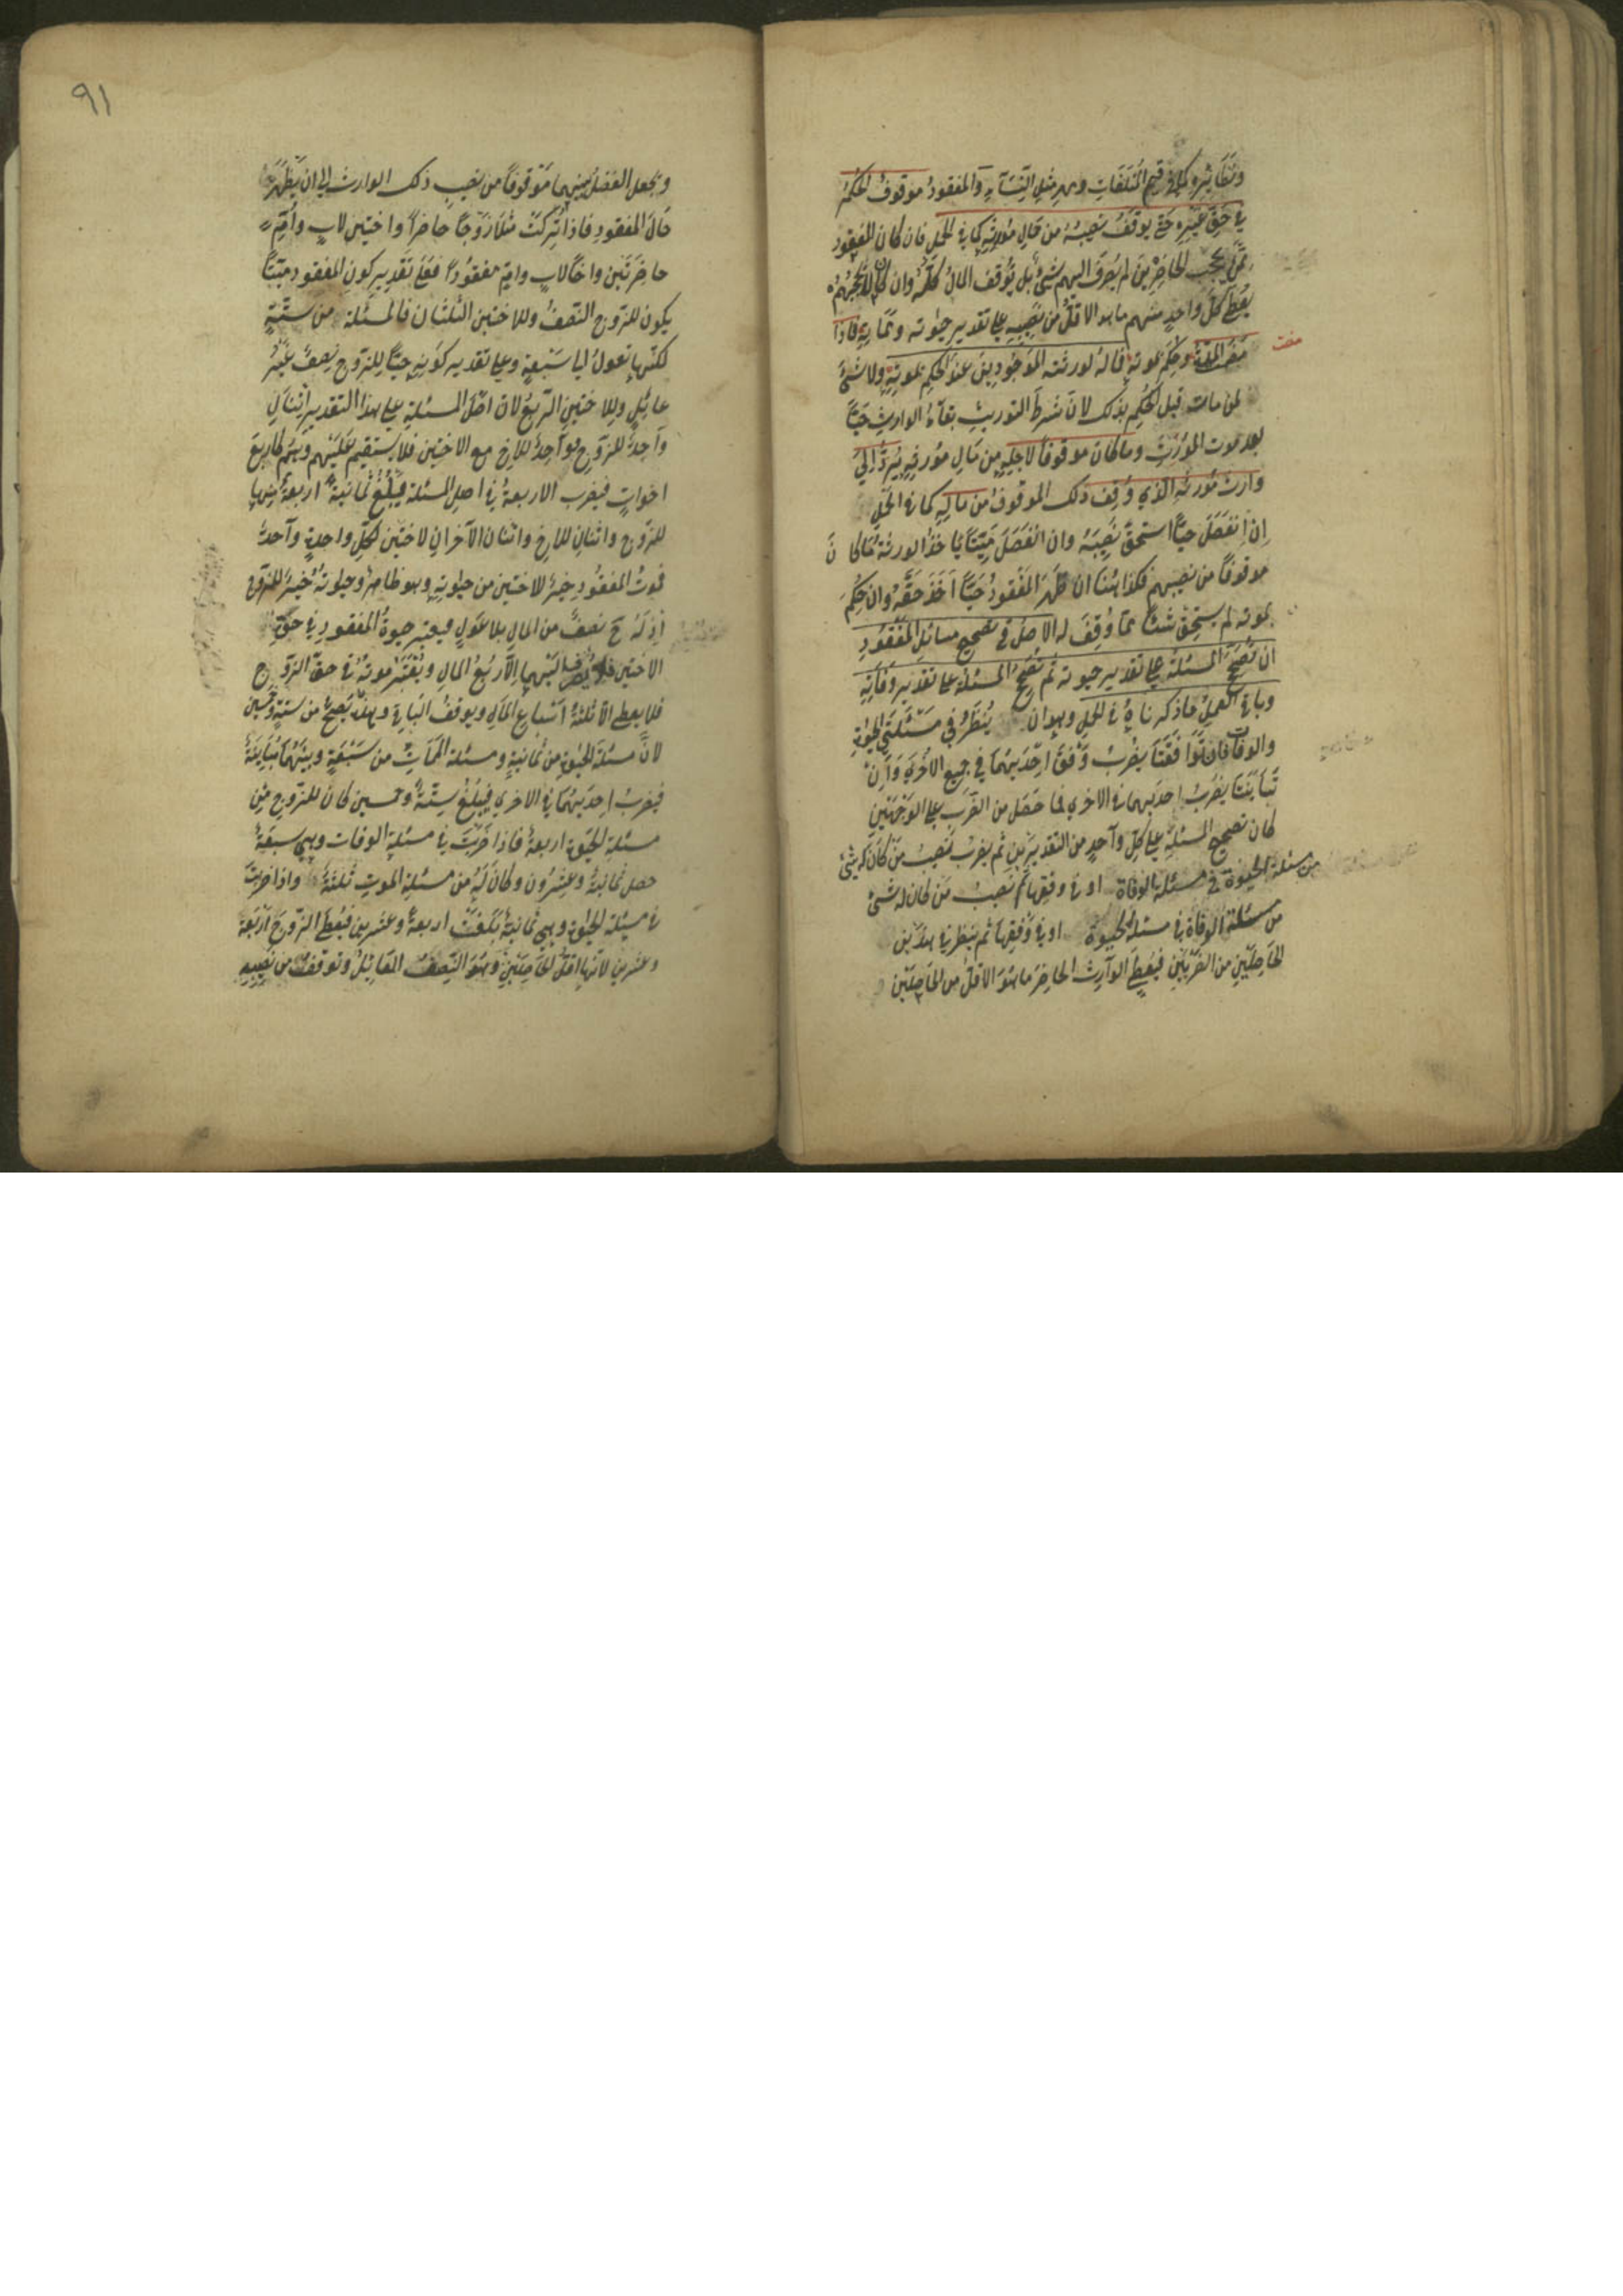 ونظائره كما في قيم المتلفات ومهر مثل النساء والمفقود موقوف الحكم
في حق غيره حتى يوقف نصيبه من مال مورثه كما في الحمل فان كان المفقود
ممن يحجب الحاضرين لم يصرف اليهم شئ بل يوقف المال كله وان كان لا يحجبهم
يعطى كل واحد منهم ما هو الاقل من نصيبه على تقدير حيوته ومماته فاذا
مضت
مضت المدة وحكم بموته فماله لورثته الموجودين عند الحكم بموته ولا شئ
لمن مات قبل الحكم بذلك لان شرط التوريث بقاء الوارث حيًا
بعد موت المورث وما كان موقوفا لاجله من مال مورثه يرد الى
وارث مورثه الذي وقف ذلك الموقوف من ماله كما في الحمل
ان انفصل حيًا استحق نصيبه وان انفصل ميتًا ياخذ الورثة ما كان
موقوفًا من نصيبهم فكذا هنا ان ظهر المفقود حيًا اخذ حقه وان حكم
بموته لم يستحق شئًا مما وقف له الاصل في تصحيح مسائل المفقود
ان تصحح المسئلة على تقدير حيوته ثم تصحح المسئلة على تقدير وفاته
وباقي العمل ما ذكرناه في الحمل وهو ان ينظر في مسئلتي الحيوة
والوفات فان توافقتا يضرب وفق احديهما في جميع الاخرى وان
تباينتا يضرب احديهما في الاخرى فما حصل من الضرب على الوجهين
كان تصحيح المسئلة على كل واحد من التقديرين ثم يضرب نصيب من كان له شئ
من مسئلة الحيوة في مسئلة الوفاة او في وفقها ثم نصيب من كان له شئ
من مسئلة الوفاة في مسئلة الحيوة او في وفقها ثم ينظر في هذين
الحاصلين من الضربين فيعطى الوارث الحاضر ما هو الاقل من الحاصلين
٩١
ويجعل الفضل بينهما موقوفًا من نصيب ذلك الوارث الى ان يظهر
حال المفقود فاذا تركت مثلا زوجًا حاضرًا واختين لاب وام
حاضرتين واخًا لاب وام مفقودًا فعلى تقدير كون المفقود ميتًا
يكون للزوج النصف وللاختين الثلثان فالمسئلة من ستة
لكنها تعول الى سبعة وعلى تقدير كونه حيًا للزوج نصف غير
عائل وللاختين الربع لان اصل المسئلة على هذا التقدير اثنان
واحد للزوج وواحد للاخ مع الاختين فلا يستقيم عليهم وهم كاربع
اخوات فيضرب الاربعة في اصل المسئلة فيبلغ ثمانية اربعة منها
للزوج واثنان للاخ واثنان الآخران لاختين لكل واحدة واحد
فموت المفقود خير للاختين من حيوته وهو ظاهر وحيوته خير للزوج
اذ له ح نصف من المال بلا عول فيعتبر حيوة المفقود في حق
الاختين فلا يصرف اليهما الا ربع المال ويعتبر موته في حق الزوج
فلا يعطى الا ثلثة اسباع المال ويوقف الباقي وهذا يصح من ستة وخمسين
لان مسئلة الحيوة من ثمانية ومسئلة الممات من سبعة وبينهما مباينة
فيضرب احديهما في الاخرى فيبلغ ستة وخمسين كان للزوج من
مسئلة الحيوة اربعة فاذا ضربت في مسئلة الوفات وهي سبعة
حصل ثمانية وعشرون وكان له من مسئلة الموت ثلثة واذا ضربت
في مسئلة الحيوة وهي ثمانية بلغت اربعة وعشرين فيعطى الزوج اربعة
وعشرين لانها اقل الحاصلين وهو النصف العائل وتوقف من نصيبه